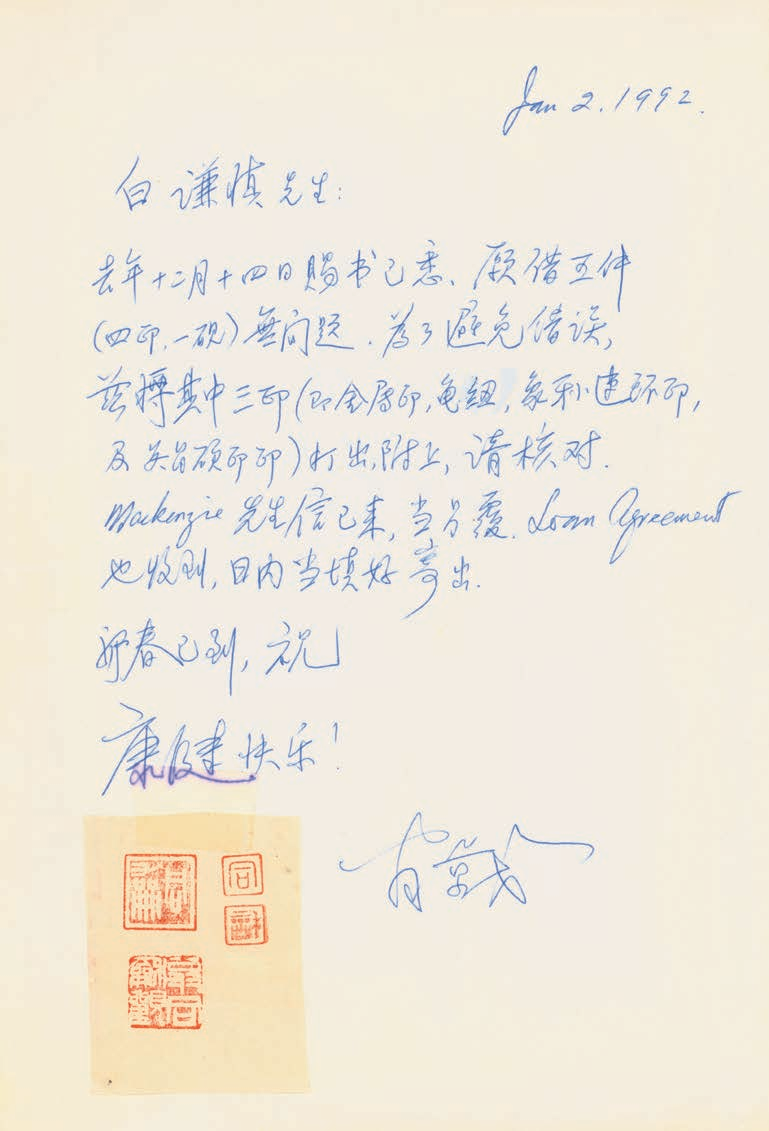 Jan 2. 1992.
白谦慎先生：
去年十二月十四日赐书已悉、愿借五件
(四印、一砚)無问题．為了避免错误，
兹将其中三印(即金属印，龟纽，象牙小连环印，
及吴昌硕印)打出，附上，请核对．
Mackenzie 先生信已来，当另覆．Loan Agreement
也收到，日内当填好寄出．
新春已到，祝
康健快乐！
同